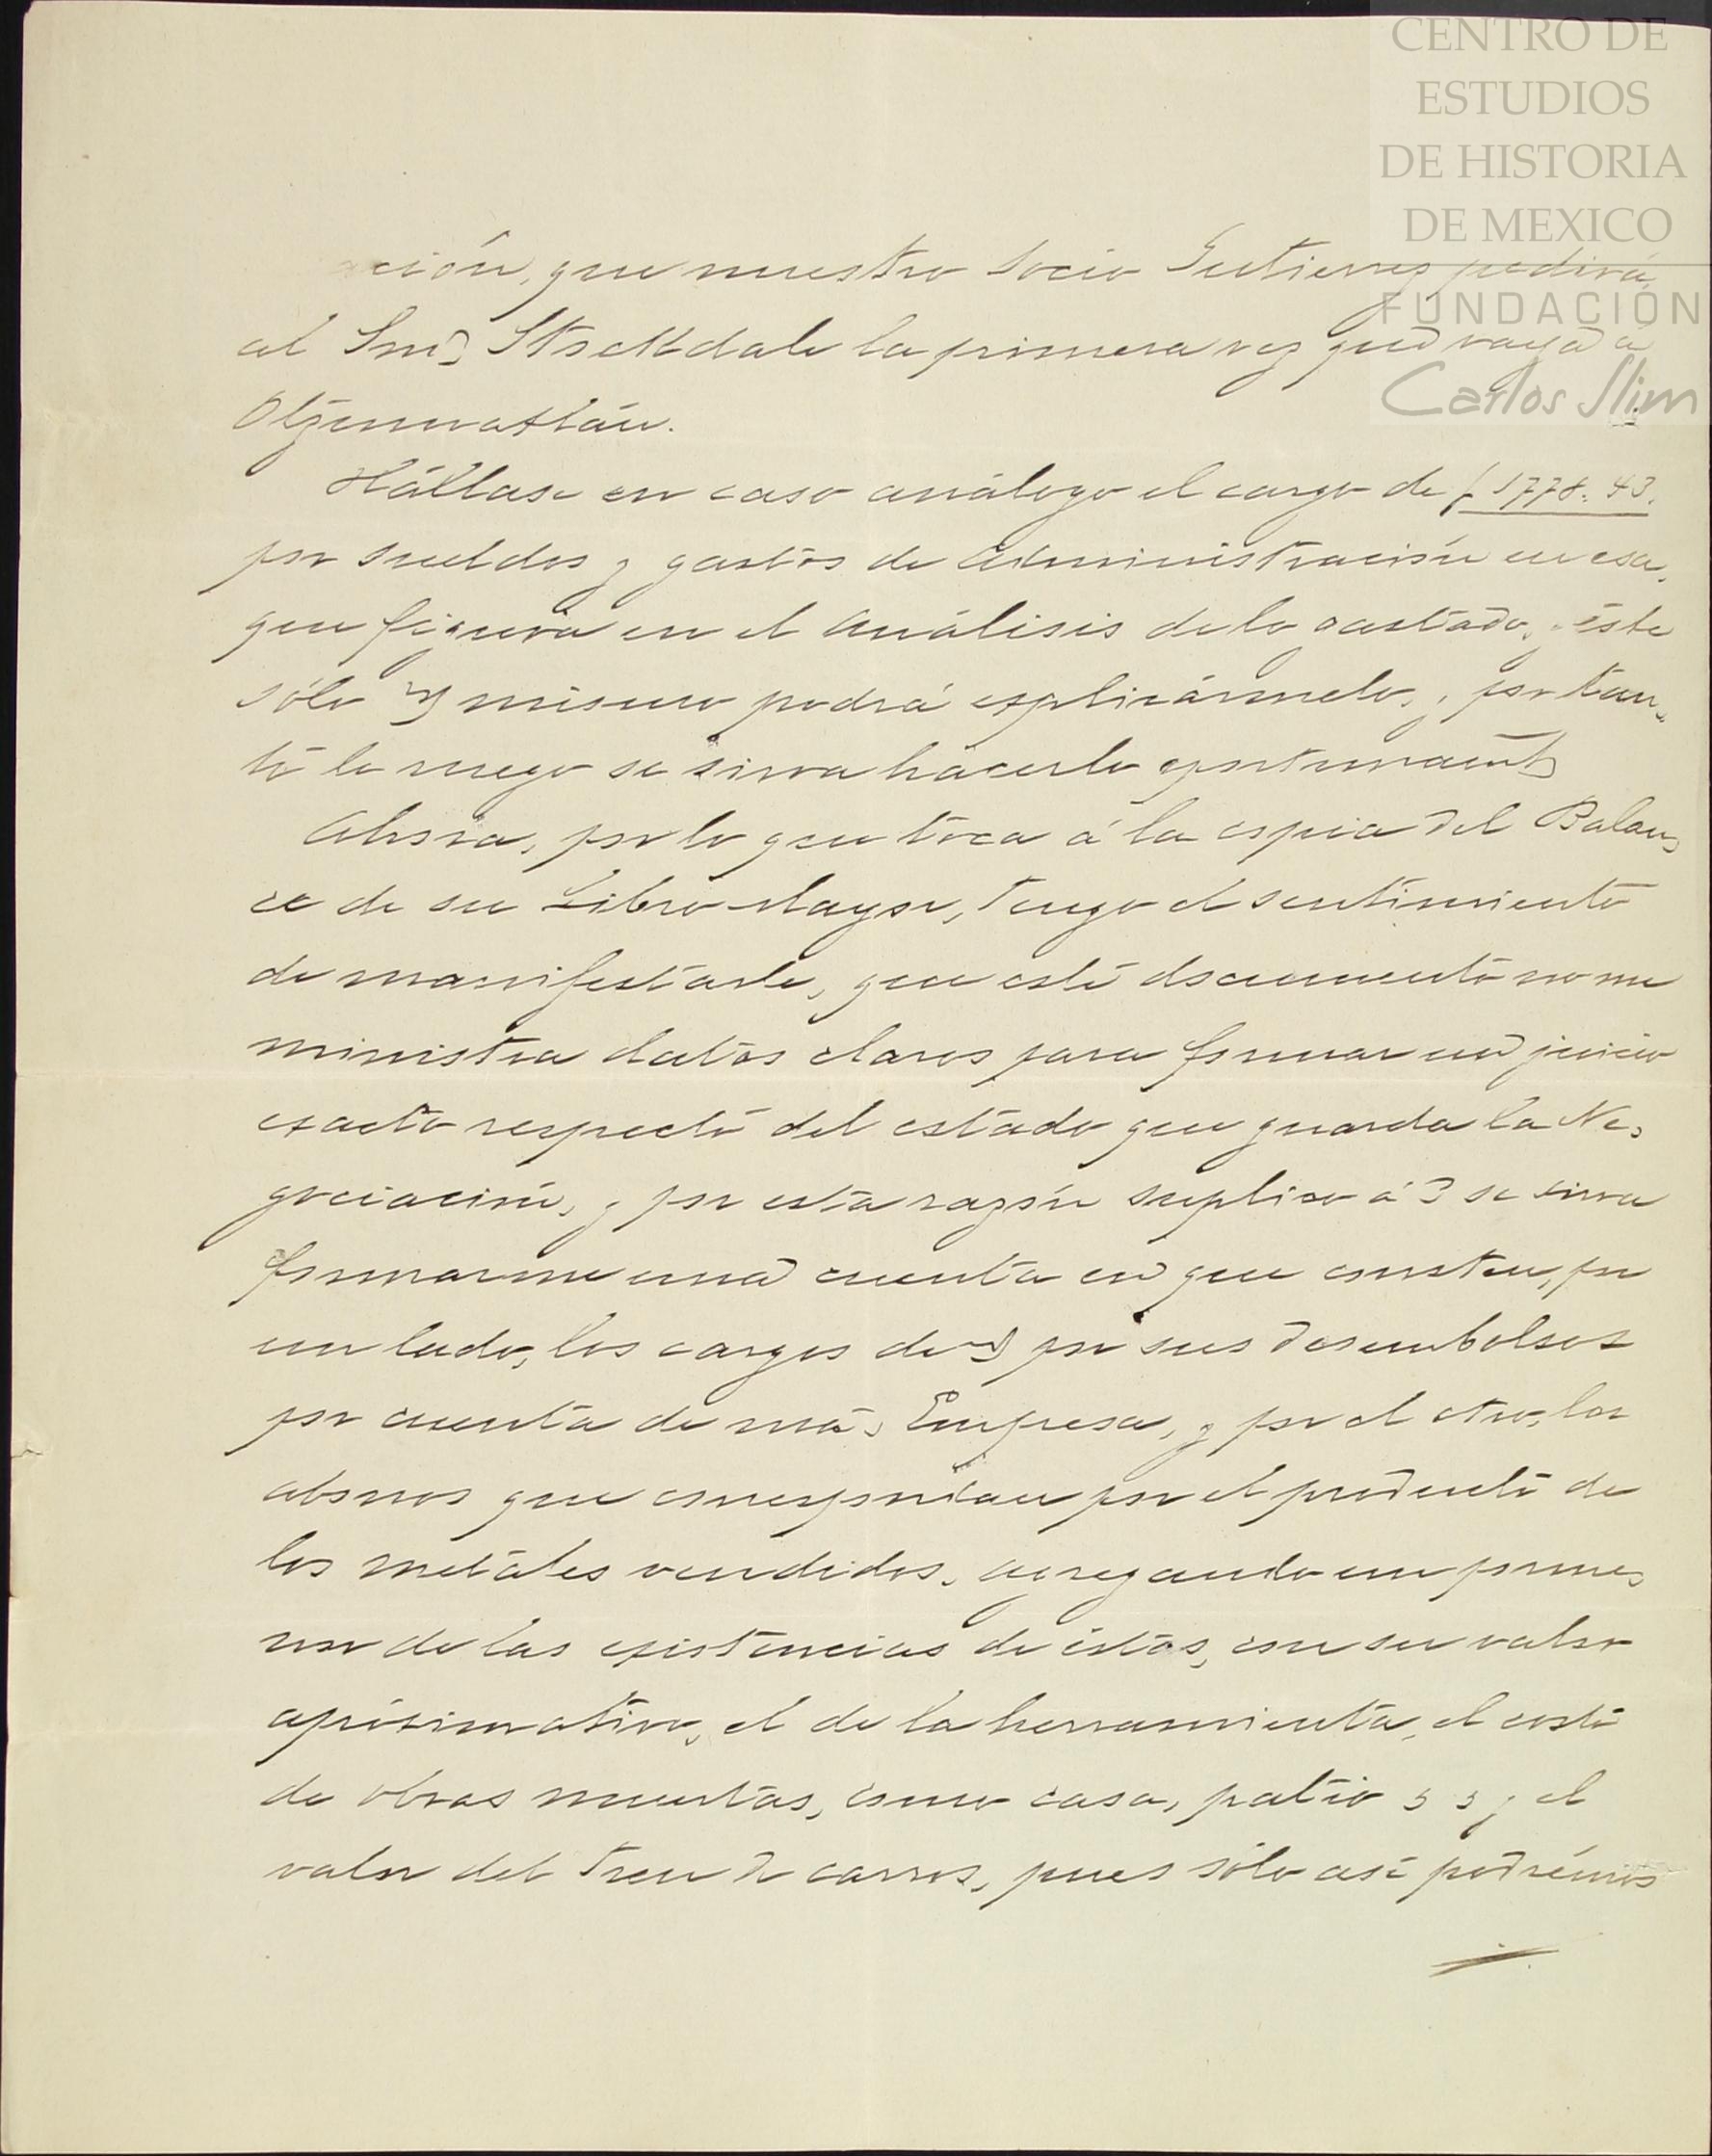 CENTRO DE
ESTUDIOS
DE HISTORIA
DE MEXICO
FUNDACIÓN
Carlos Slim
ción, que nuestro socio Gutierrez pedirá
al Snr. Stockdale la primera vez que vaya á
Otzumatlán.
Hállase en caso análogo el cargo de $1778.43.
por sueldos y gastos de administración en esa,
que figura en el análisis de lo gastado, y éste
sólo V mismo podrá esplicármelo, y por tan-
to le ruego se sirva hacerlo oportunamente
Ahora, por lo que toca á la copia del Balan-
ce de su Libro Mayor, tengo el sentimiento
de manifestarle, que este documento no me
ministra datos claros para formar un juicio
exacto respecto del estado que guarda la Ne-
gociación, y por esta razón suplico á V se sirva
formarme una cuenta en que consten, por
un lado, los cargos de V por sus desembolsos
por cuenta de nra. Empresa, y por el otro, los
abonos que correspondan por el producto de
los metales vendidos, agregando un porme-
nor de las existencias de éstos, con su valor
aprósimativo, el de la herramienta, el costo
de obras muertas, como casa, patio y el
valor del tren de carros, pues sólo así podrémos